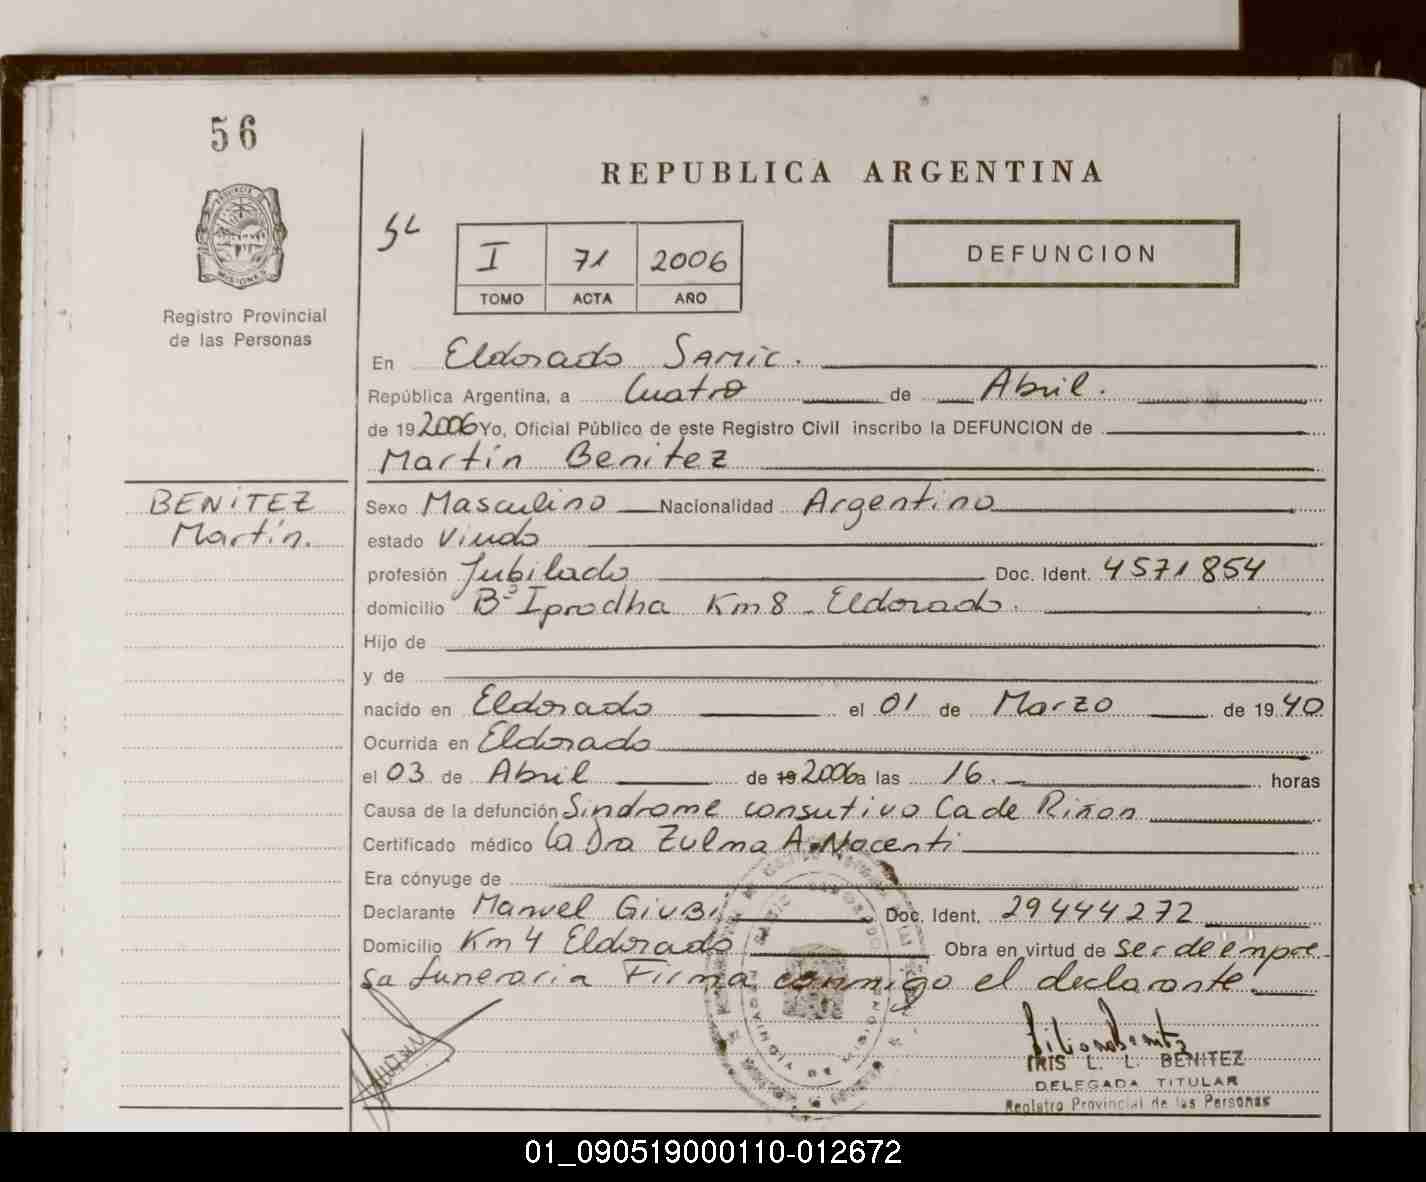 56
REPUBLICA ARGENTINA
MISIONES
Registro Provincial
de las Personas
I 71 2006
TOMO ACTA AÑO
DEFUNCION
En Eldorado Samic.
República Argentina, a Cuatro de Abril.
de 192006 Yo, Oficial Público de este Registro Civil inscribo la DEFUNCION de
Martín Benitez
BENITEZ
Martín.
Sexo Masculino Nacionalidad Argentino
estado Viudo
profesión Jubilado Doc. Ident. 4571854
domicilio Bº Iprodha Km 8 - Eldorado.
Hijo de
y de
nacido en Eldorado el 01 de Marzo de 1940
Ocurrida en Eldorado
el 03 de Abril de 19 2006 a las 16. horas
Causa de la defunción Sindrome consutivo Ca de Riñon
Certificado médico la Dra Zulma A. Nocenti
Era cónyuge de
Declarante Manuel Giubi Doc. Ident. 29444272
Domicilio Km 4 Eldorado Obra en virtud de ser de empre
sa funeraria Firma conmigo el declarante.
IRIS L. L. BENITEZ
DELEGADA TITULAR
Registro Provincial de las Personas
01_090519000110-012672